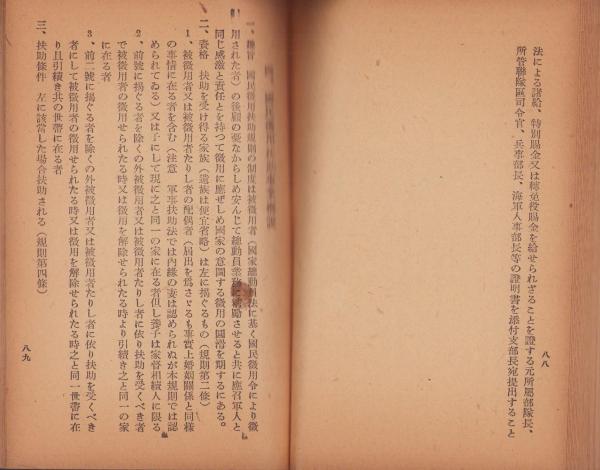 法による諸給、特別賜金又は轉免役賜金を給せられざることを證する元所屬部隊長、
所管聯隊區司令官、兵事部長、海軍人事部長等の證明書を添付支部長宛提出すること
八八
一、趣旨　國民徵用扶助規則の制度は被徵用者（國家總動員法に基く國民徵用令により徵
用された者）の後顧の憂なからしめ安んじて總動員業務に精勵させると共に應召軍人と
同じ感激と責任とを持つて徵用に應ぜしめ國家の意圖する徵用の圓滑を期するにある。
二、資格　扶助を受け得る家族（遺族は便宜省略）は左に揭ぐるもの（規則第二條）
1、被徵用者又は被徵用者たりし者の配偶者（屆出を爲さゞるも事實上婚姻關係と同樣
の事情に在る者を含む（注意　軍事扶助法では內緣の妻は認められぬが本規則では認
められてゐる）又は子にして現に之と同一の家に在る者但し養子は家督相續人に限る
2、前號に揭ぐる者を除くの外被徵用者又は被徵用者たりし者に依り扶助を受くべき者
で被徵用者の徵用せられたる時又は徵用を解除せられたる時より引續き之と同一の家
に在る者
3、前二號に揭ぐる者を除くの外被徵用者又は被徵用者たりし者に依り扶助を受くべき
者にして被徵用者の徵用せられたる時又は徵用を解除せられたる時之と同一世帶に在
り且引續き其の世帶に在る者
三、扶助條件　左に該當した場合扶助される（規則第四條）
八九